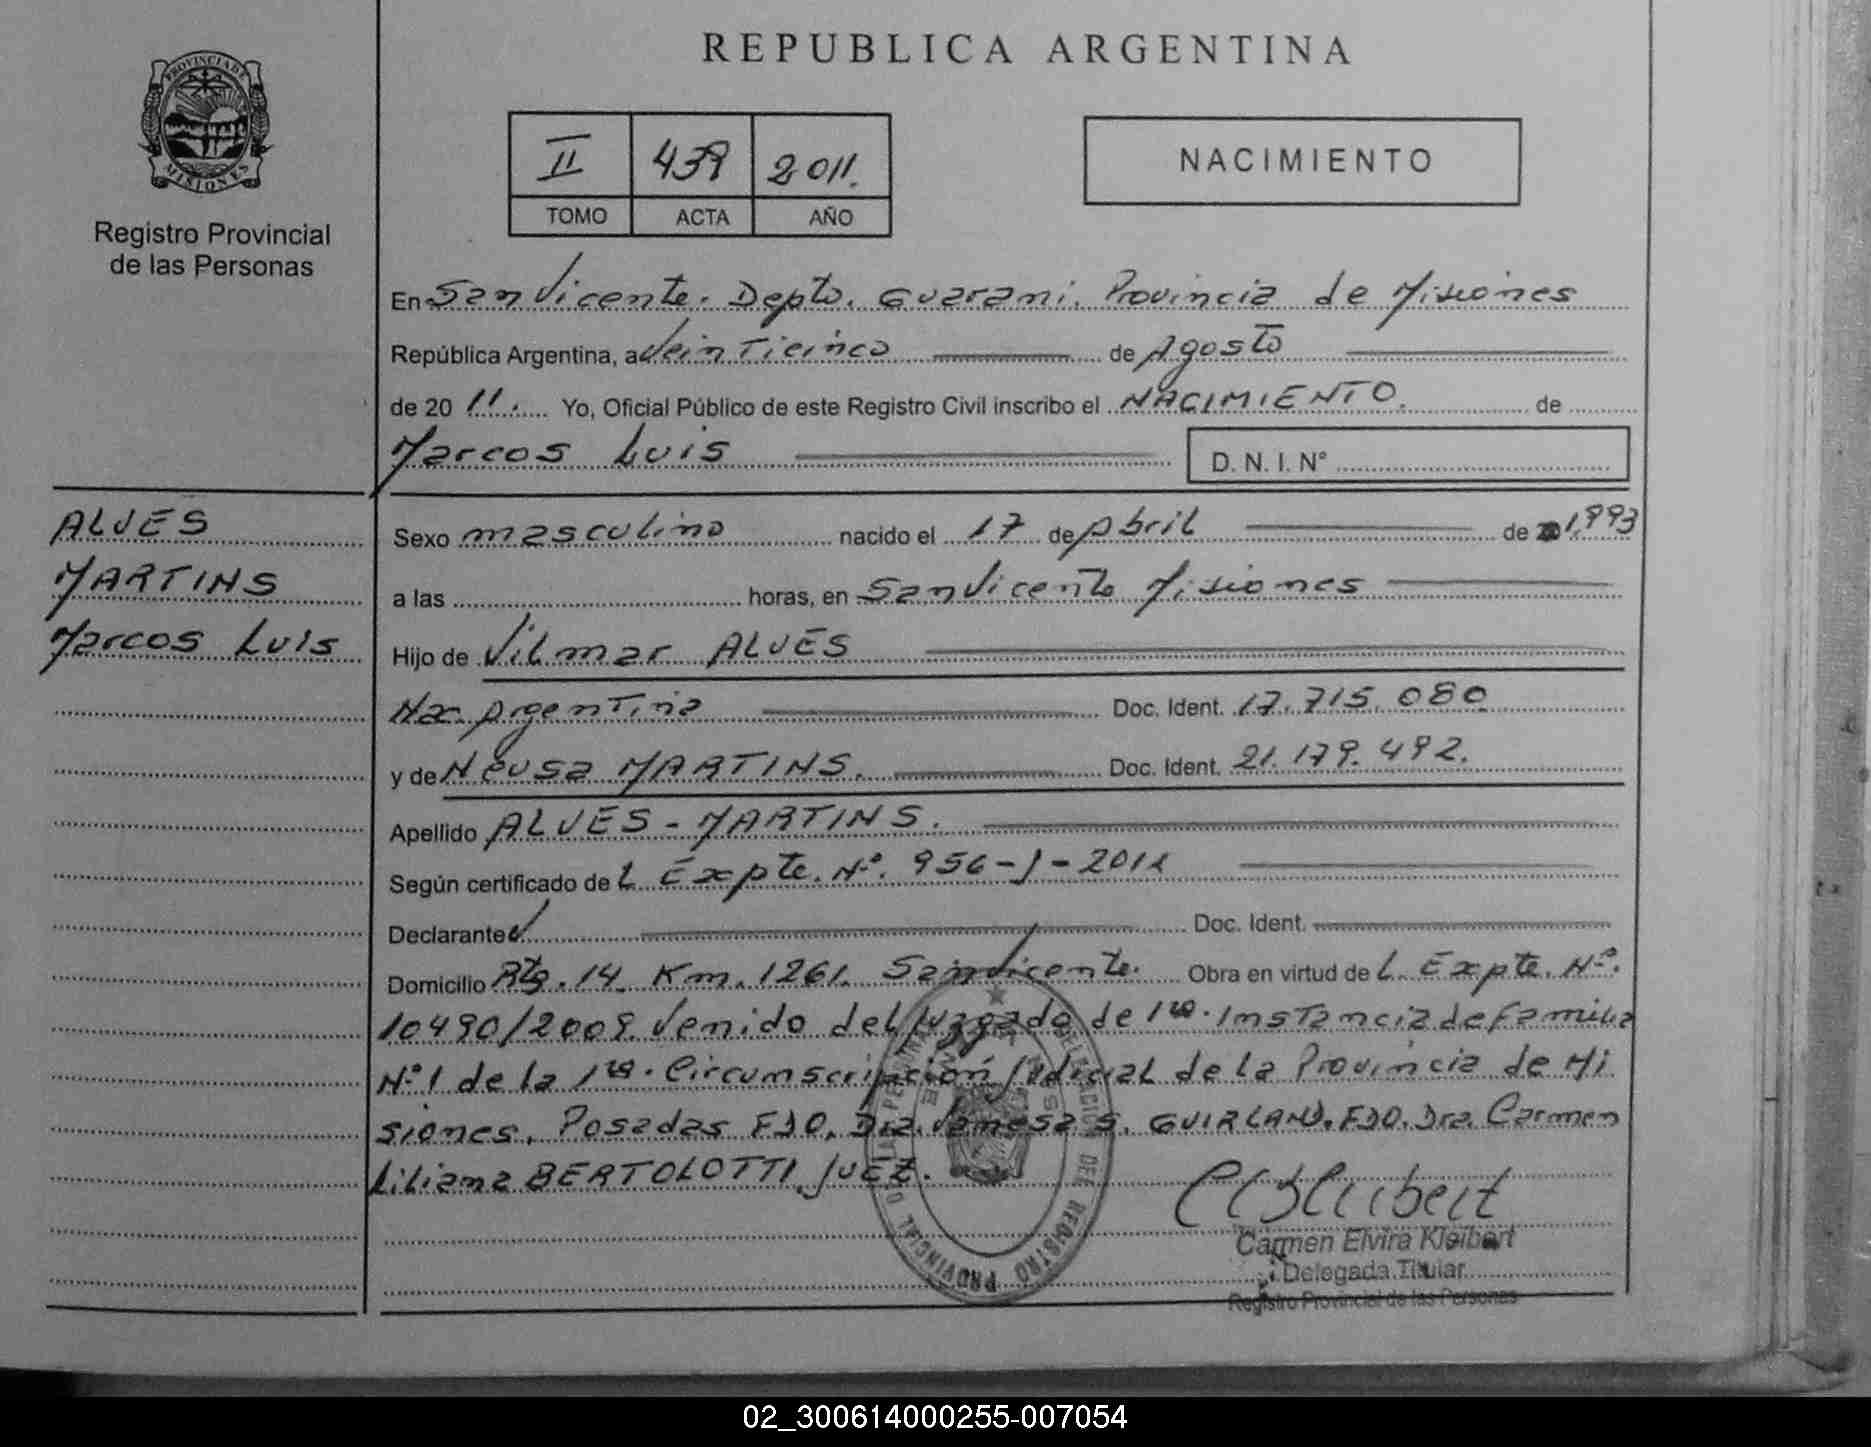 REPUBLICA ARGENTINA
PROVINCIA DE
MISIONES
Registro Provincial
de las Personas
II 439 2011.
TOMO ACTA AÑO
NACIMIENTO
En San Vicente. Depto. Guarani. Provincia de Misiones
República Argentina, a Veinticinco de Agosto
de 20 11. Yo, Oficial Público de este Registro Civil inscribo el NACIMIENTO. de
Marcos Luis D. N. I. N°
ALVES
MARTINS
Marcos Luis
Sexo masculino nacido el 17 de Abril de 1993
a las horas, en San Vicente Misiones
Hijo de Vilmar ALVES
Na. Argentina Doc. Ident. 17.715.080
y de Neusa MARTINS. Doc. Ident. 21.179.492.
Apellido ALVES - MARTINS.
Según certificado de L Expte. Nº. 956-J-2011
Declarante Doc. Ident.
Domicilio Rta. 14 Km. 1261. San Vicente. Obra en virtud de L Expte. Nº.
10490/2009. Venido del Juzgado de 1ra. Instancia de Familia
Nº1 de la 1ra. Circumscripción Judicial de la Provincia de Mi
siones, Posadas FDO. Dra. Vanesa S. GUIRLAND. FDO. Dra. Carmen
Liliana BERTOLOTTI JUEZ.
DELEGACION DEL REGISTRO PROVINCIAL
Carmen Elvira Kleibert
Delegada Titular
Registro Provincial de las Personas
02_300614000255-007054